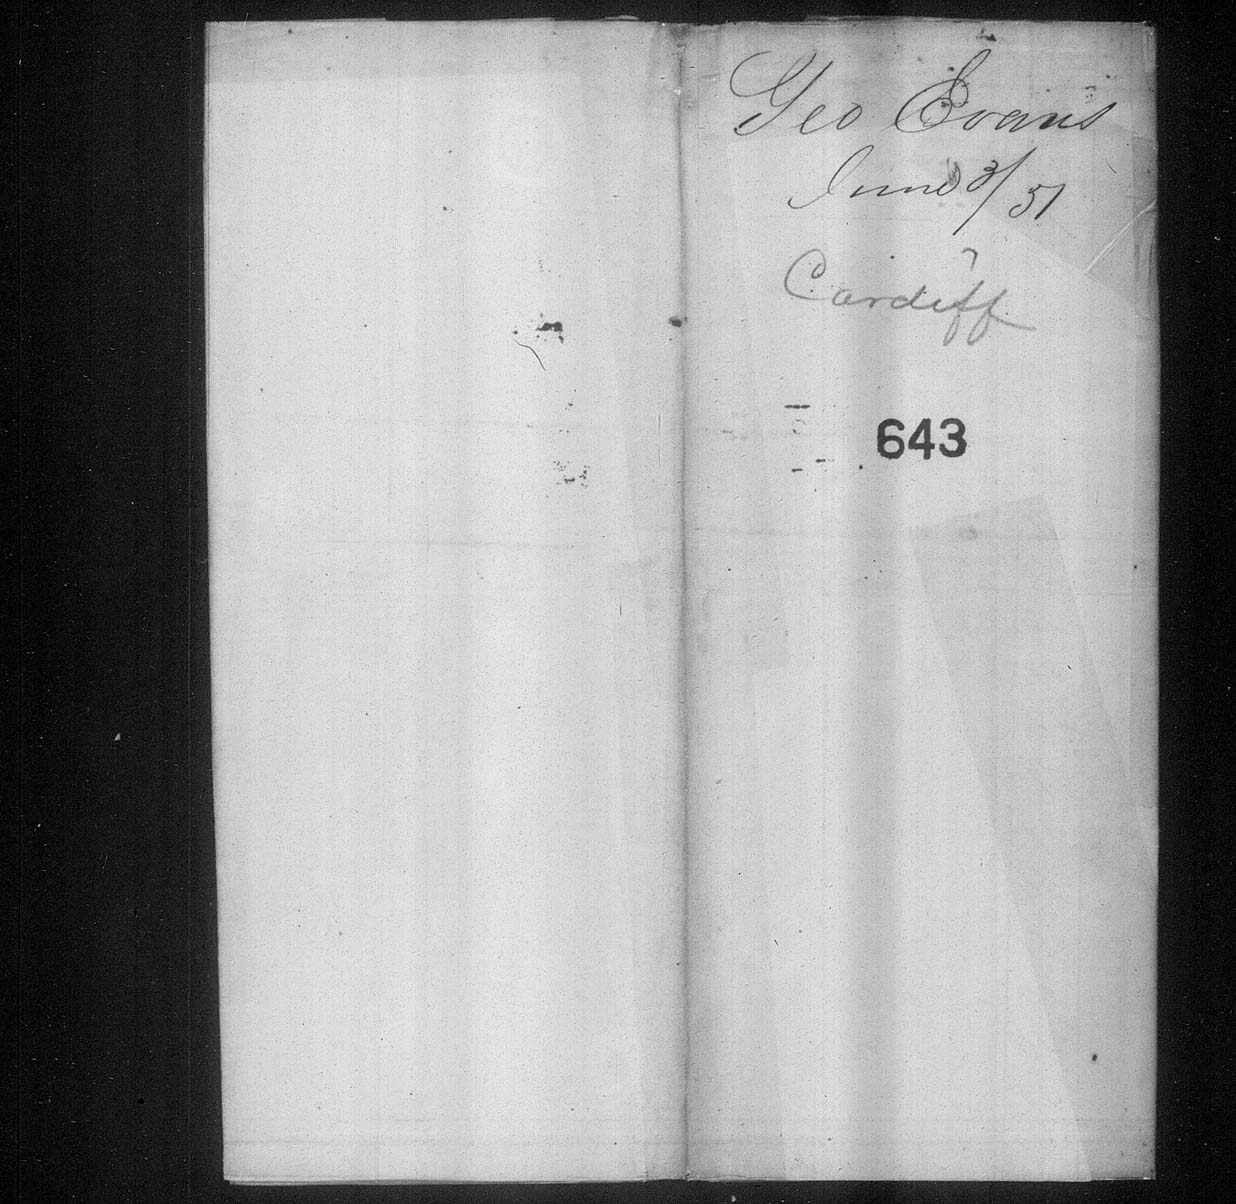 Geo Evans
June 3/51
Cardiff
643